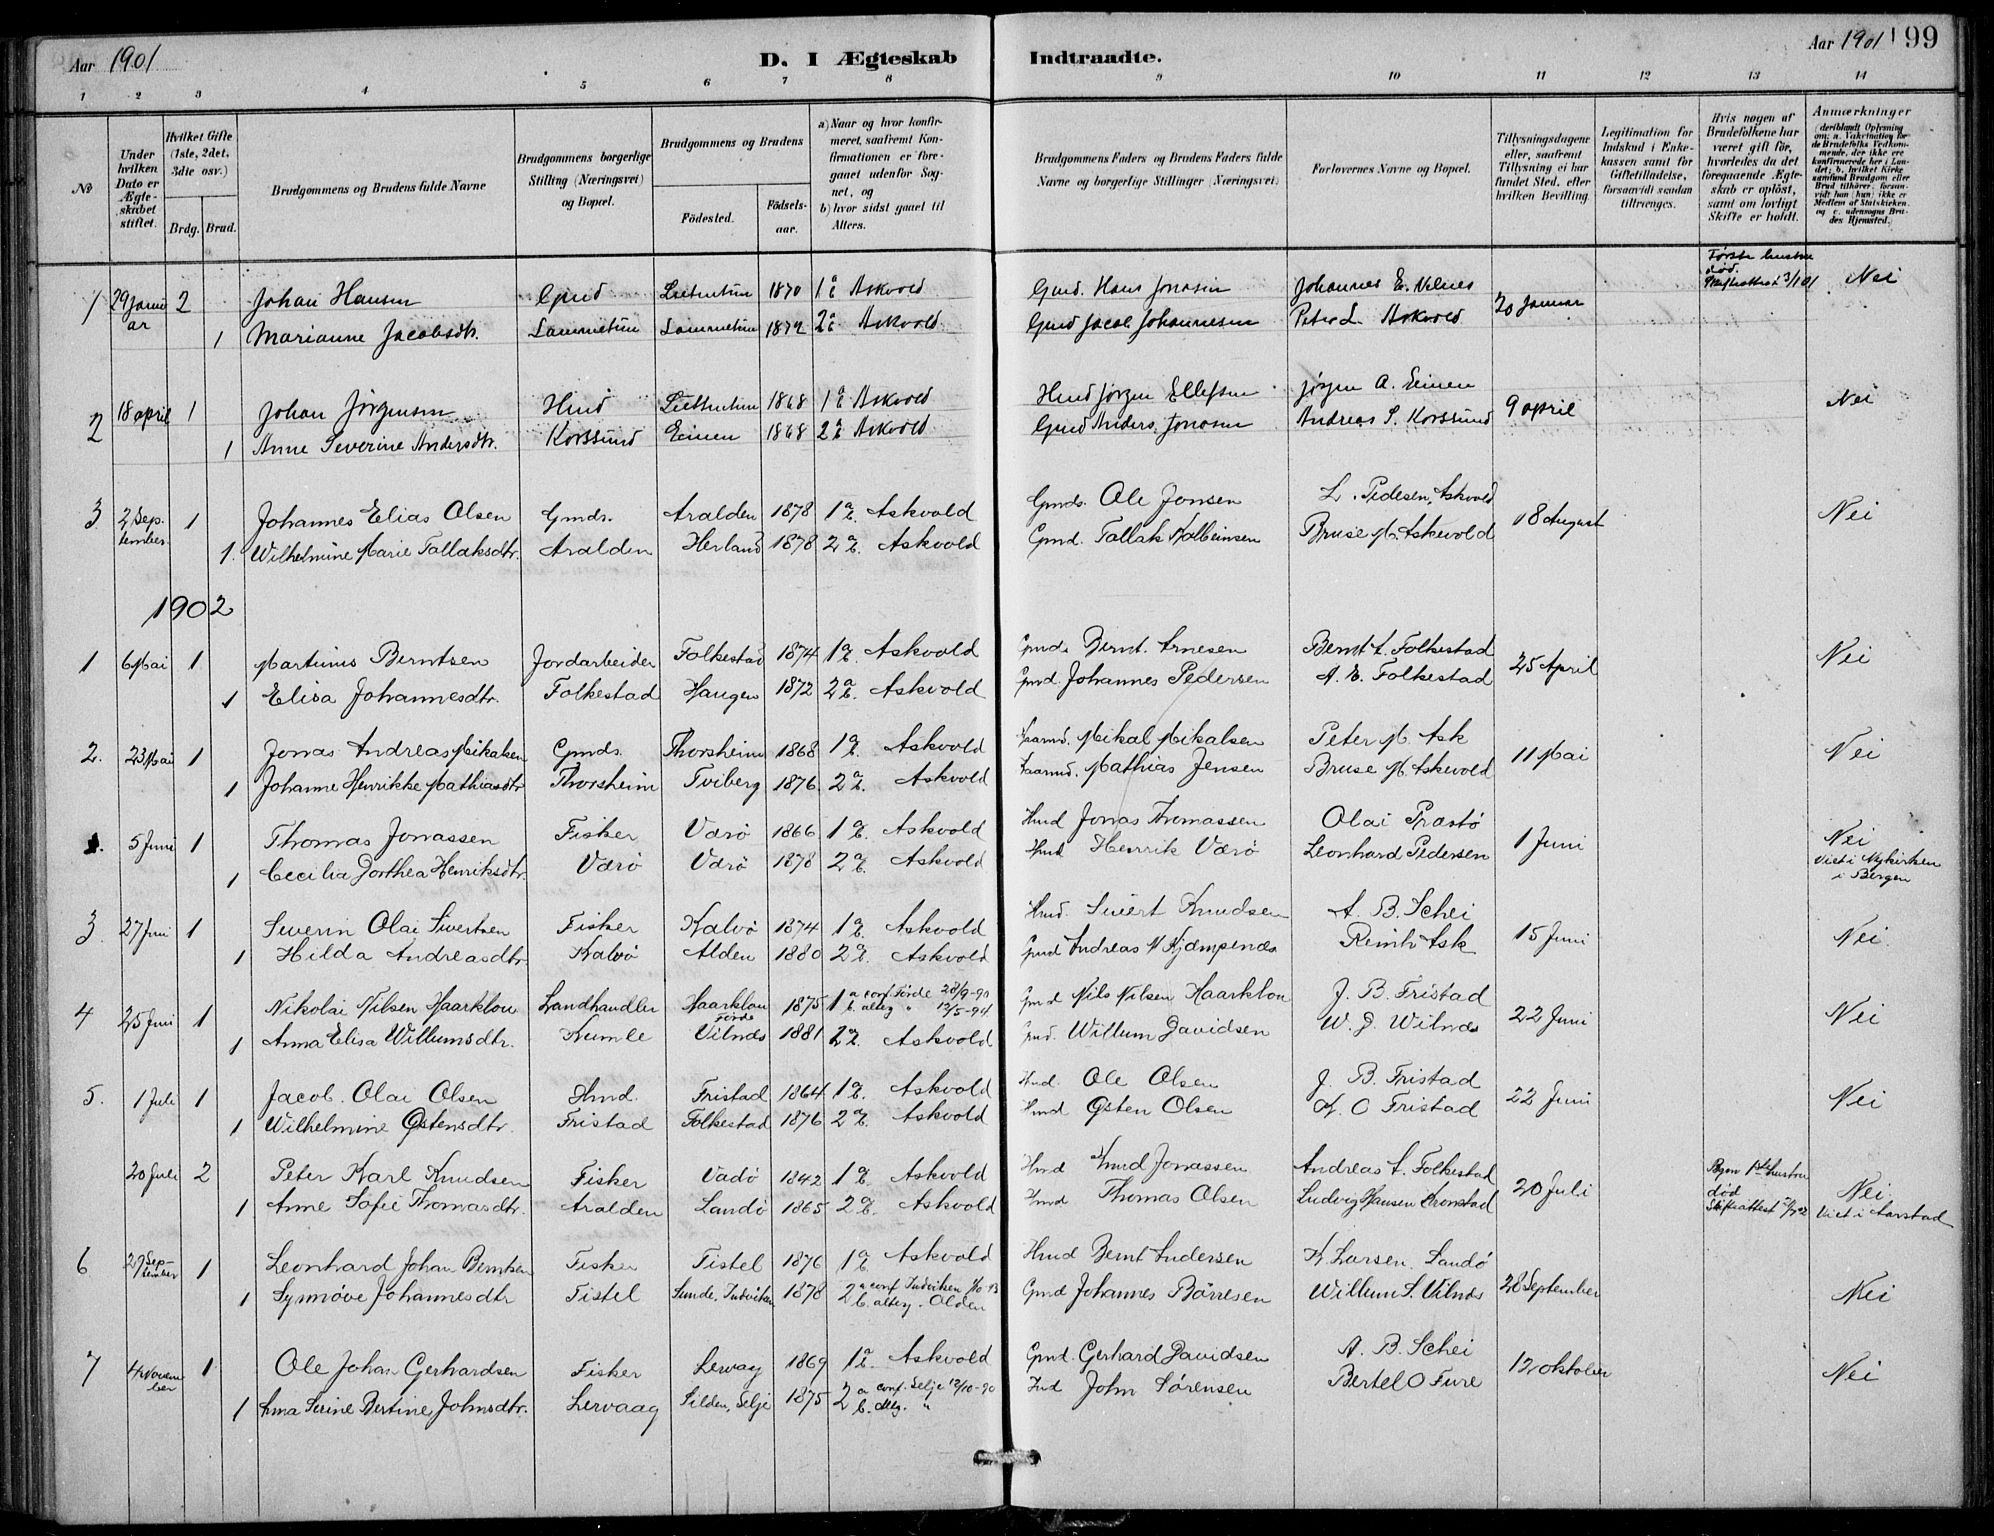 Aar 1901
D. I Ægteskab Indtraadte.
Aar 1901
199
1 2 3 4 5 6 7 8 9 10 11 12 13 14
No
Under hvilken Dato er Ægteskabet stiftet.
Hvilket Gifte (1ste, 2det, 3die osv.)
Brdg. Brud.
Brudgommens og Brudens fulde Navne
Brudgommens borgerlige Stilling (Næringsvei) og Bopæl.
Brudgommens og Brudens
Födested.
Födselsaar.
a) Naar og hvor konfirmeret, saafremt Konfirmationen er foregaaet udenfor Sognet, og
b) hvor sidst gaaet til Alters.
Brudgommens Faders og Brudens Faders fulde Navne og borgerlige Stillinger (Næringsvei)
Forlovernes Navne og Bopæl.
Tillysningsdagene eller, saafremt Tillysning ei har fundet Sted, efter hvilken Bevilling.
Legitimation for Indskud i Enkekassen samt for Giftetilladelse, forsaavidt saadan tiltrænges.
Hvis nogen af Brudefolkene har været gift för, hvorledes da det foregaaende Ægteskab er oplöst, samt om lovligt Skifte er holdt.
Anmærkninger
1 29 Januar 2 Johan Hansen Gmd 1870 1 a b Askvold Gmd. Hans Jonasen Johannes E. Vilnes 20 Januar Første hustru død. Nei
1 Marianne Jacobsdtr. 1872 2 a b Askvold Gmd Jacob Johannesen Peter L. Askvold
2 18 april 1 Johan Jørgensen Hmd 1868 1 a b Askvold Hmd Jørgen Ellefsen Jørgen A. Einen 9 april Nei
1 Anne Severine Andersdtr. Korssund Einen 1868 2 a b Askvold Gmd Anders Jonasen Andreas S. Korssund
3 2 September 1 Johannes Elias Olsen Gmds. Aralden 1878 1 a b. Askvold Gmds. Ole Jonsen L. Pedesen, Askvold 18 August Nei
1. Wilhelmine Marie Tollaksdtr. Aralden Herland 1878 2 a b. Askvold Gmd. Tollak Kolbeinsen Bruse M. Askevold
1902
1 6 Mai 1 Martinus Berntsen Jordarbeider Folkestad 1874 1 a b. Askvold Gmds Bernt Arnesen Bernt A. Folkestad 25 April Nei
1 Elisa Johannesdtr. Folkestad Haugen 1872 2 a b. Askvold Gmd. Johannes Pedersen A. E. Folkestad
2. 23 Mai 1 Jonas Andreas Mikalsen Gmds. Thorsheim 1868 1 a b. Askvold Mikal Mikalsen Peter M. Ask 11 Mai Nei
1 Johanne Henrikke Mathiasdtr Thorsheim Tviberg 1876. 2 a b. Askvold Mathias Jensen Bruse M. Askevold
5 Juni 1 Thomas Jonassen Fisker Værö 1866 1 a b. Askvold Hmd Jonas Thomassen Olai Præstö 1 Juni Nei
1 Cecilia Dorthea Henriksdtr. Værö Værö 1878 2 a b. Askvold Hmd Henrik Værö Leonhard Pedersen Viet i Nykirken i Bergen
3. 27 Juni 1 Severin Olai Sivertsen Fisker Kalvö 1874 1 a b. Askvold Hmd. Sivert Knudsen A. B. Schei 15 Juni Nei.
1 Hilda Andreasdtr. Kalvö Alden 1880 2 a b. Askvold Gmd Andreas N Kjempenæs Reinh. Ask
4 25 Juni 1 Nikolai Nilsen Haarklou Landhandler Haarklou Förde 1875 1 a conf. Förde 28/9-90 b. alterg " 12/5-94 Gmd Nils Nilsen Haarklou J. B. Fristad 22 Juni Nei
1 Anna Elisa Willumsdtr. Kumle Vilnæs 1881 2 a b. Askvold Gmd. Willum Davidsen W. D. Wilnæs
5. 1 Juli 1 Jacob. Olai Olsen Hmd. Fristad 1864 1 a b. Askvold Hmd Ole Olsen J. B. Fristad 22 Juni Nei
1 Wilhelmine Østensdtr. Fristad Folkestad 1876 2 a b. Askvold Hmd Østen Olsen K. O Fristad
20 Juli 2 Peter Karl Knudsen Fisker Vadö 1842 1 a b. Askvold Hmd Knud Jonassen Andreas A. Folkestad 20 Juli 1ste hustru død Nei
1 Anne Sofie Thomasdtr. Aralden Landö 1865 2 a b. Askvold Hmd Thomas Olsen Ludvig Hansen Skifteattest Viet i Aarstad
6 29 September 1 Leonhard Johan Berntsen Fisker Tistel 1876 1 a b. Askvold Hmd Bernt Andersen K. Larsen. Landö 28 September Nei
1 Synnöve Johannesdtr Tistel Sunde, Indviken 1878 2 a conf. Indviken b. alterg. Olden Gmd Johannes Börresen Willum S. Vilnæs
7 4 November 1 Ole Johan Gerhardsen Fisker Lervag 1869 1 a b. Askvold Gmd. Gerhard Davidsen A. B. Schei 12 oktober Nei
1 Anna Serine Bertine Johnsdtr. Lervaag Silden, Selje 1875 2 a conf. Selje 12/10-90 b. alterg. " Ind John Sørensen Bertel O Fure